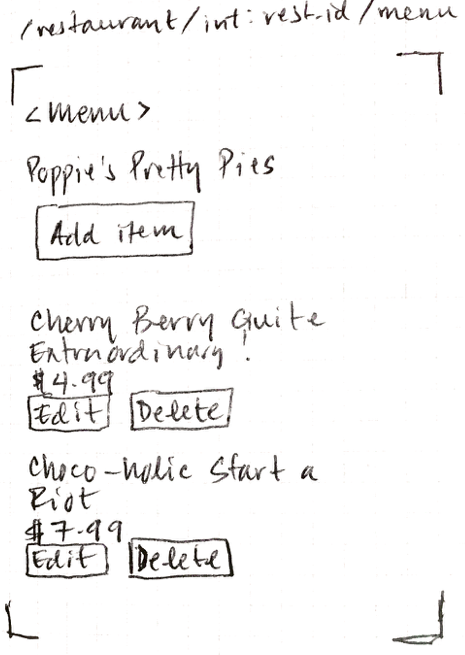 /restaurant/int:rest.id/menu
<menu>
Poppie's Pretty Pies
Add item
Cherry Berry Quite
Extraordinary!
$4.99
Edit Delete
Choco-holic Start a
Riot
$7.99
Edit Delete